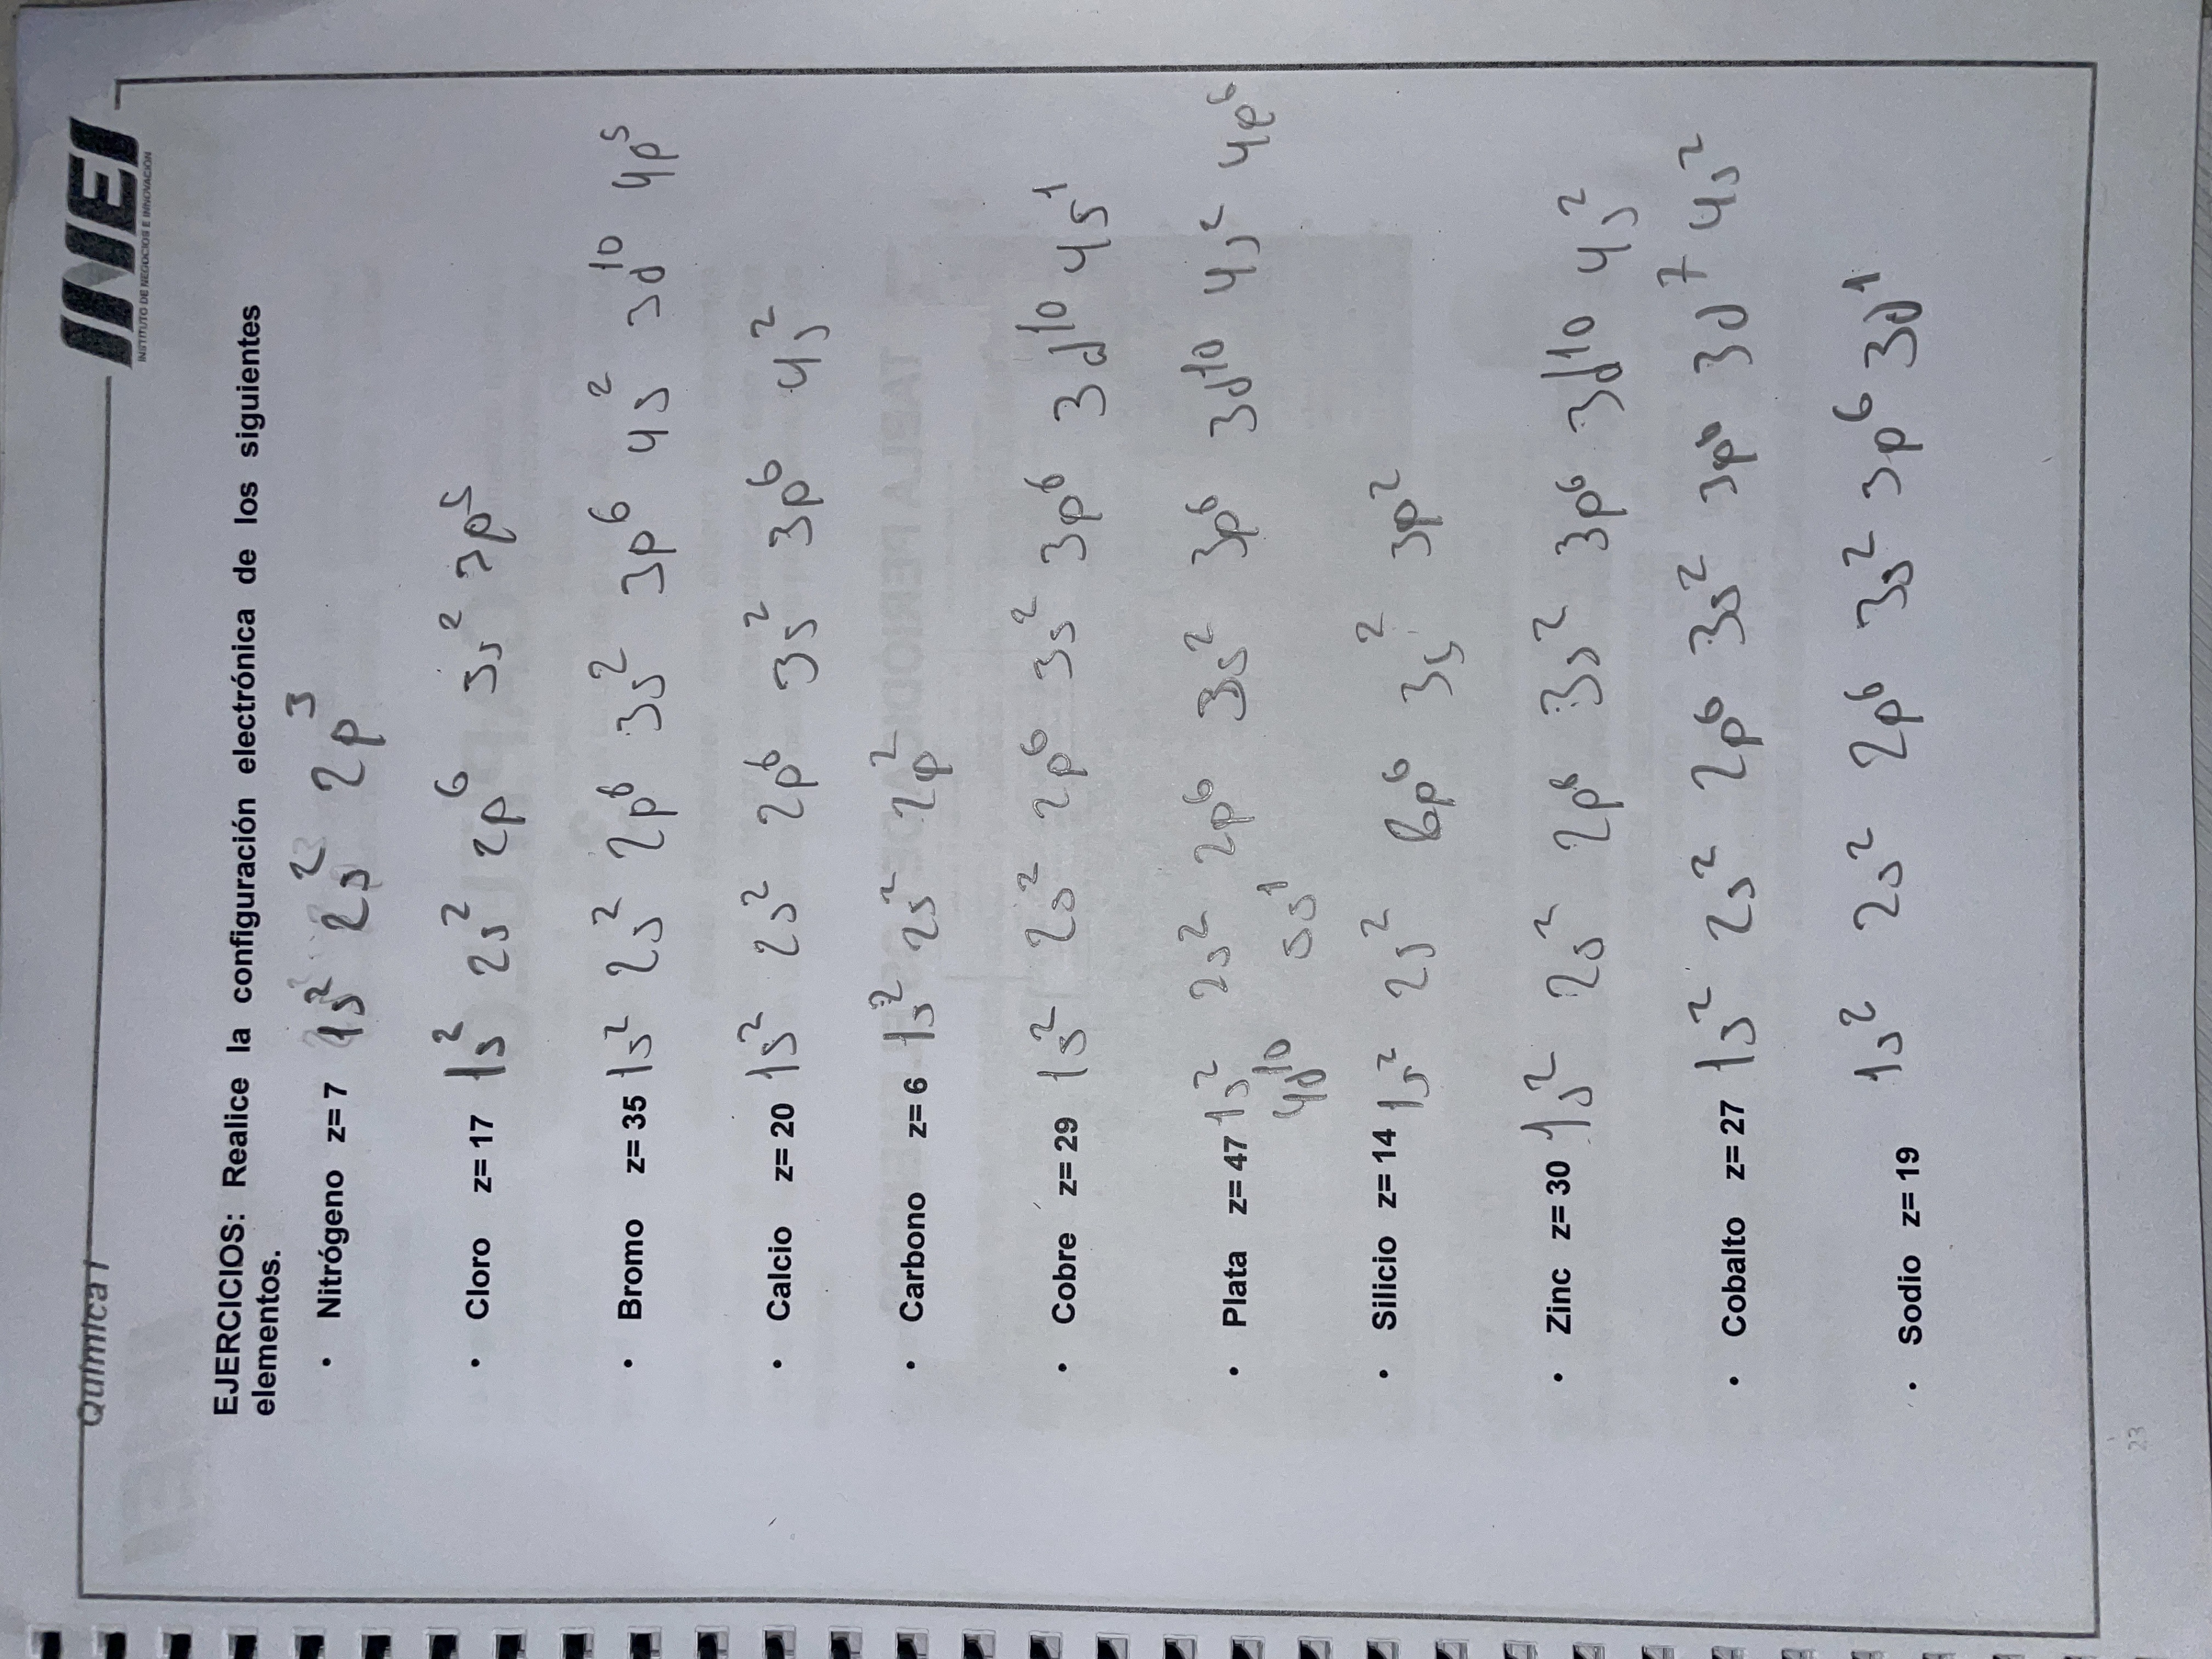 Química I
INEI
INSTITUTO DE NEGOCIOS E INNOVACIÓN
EJERCICIOS: Realice la configuración electrónica de los siguientes
elementos.
• Nitrógeno z= 7 1s² 2s² 2p³
• Cloro z= 17 1s² 2s² 2p⁶ 3s² 3p⁵
• Bromo z= 35 1s² 2s² 2p⁶ 3s² 3p⁶ 4s² 3d¹⁰ 4p⁵
• Calcio z= 20 1s² 2s² 2p⁶ 3s² 3p⁶ 4s²
• Carbono z= 6 1s² 2s² 2p²
• Cobre z= 29 1s² 2s² 2p⁶ 3s² 3p⁶ 3d¹⁰ 4s¹
• Plata z= 47 1s² 2s² 2p⁶ 3s² 3p⁶ 3d¹⁰ 4s² 4p⁶
4d¹⁰ 5s¹
• Silicio z= 14 1s² 2s² 2p⁶ 3s² 3p²
• Zinc z= 30 1s² 2s² 2p⁶ 3s² 3p⁶ 3d¹⁰ 4s²
• Cobalto z= 27 1s² 2s² 2p⁶ 3s² 3p⁶ 3d⁷ 4s²
• Sodio z= 19 1s² 2s² 2p⁶ 3s² 3p⁶ 3d¹
23